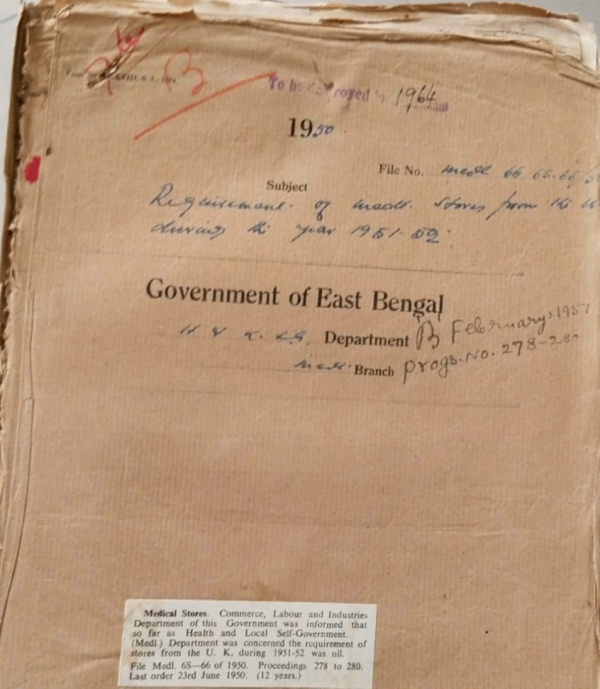 B
To be destroyed in 1964
1950
File No. Medl 6S-66/50
Subject
Requirement of medl. Stores from the U
during the year 1951-52.
Government of East Bengal
H & L. S. G. Department B February, 1951
Medl. Branch Progs. No. 278-280
Medical Stores. Commerce, Labour and Industries
Department of this Government was informed that
so far as Health and Local Self-Government.
(Medl.) Department was concerned the requirement of
stores from the U. K. during 1951-52 was nil.
File Medl. 6S—66 of 1950. Proceedings 278 to 280.
Last order 23rd June 1950. (12 years.)